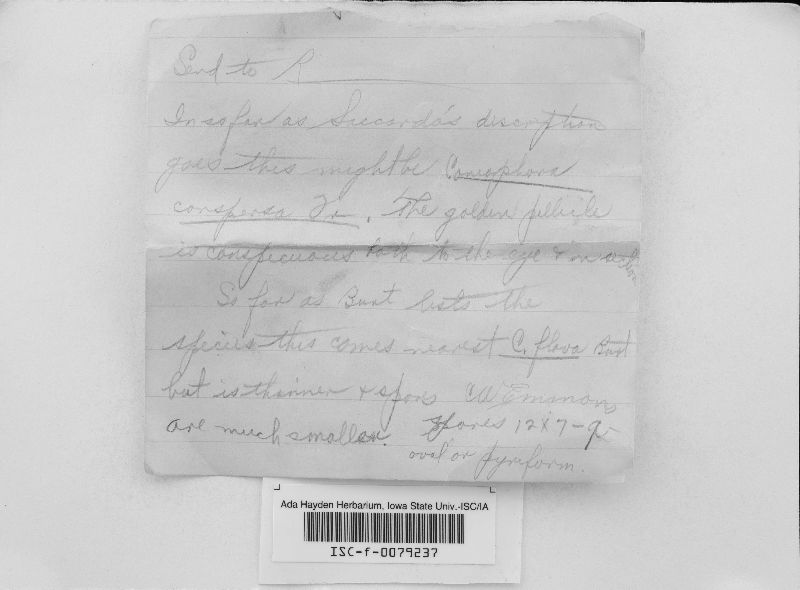 Send to R
In so far as Saccardo's description
goes this might be Coniophora
conspersa Fr. The golden pellicle
is conspicuous both to the eye & in section
So far as Burt lists the
species this comes nearest C. flava Burt
but is thinner & spors CW Emmons
are much smaller. Spores 12 x 7-9
oval or pyriform.
Ada Hayden Herbarium, Iowa State Univ.-ISC/IA
ISC-f-0079237